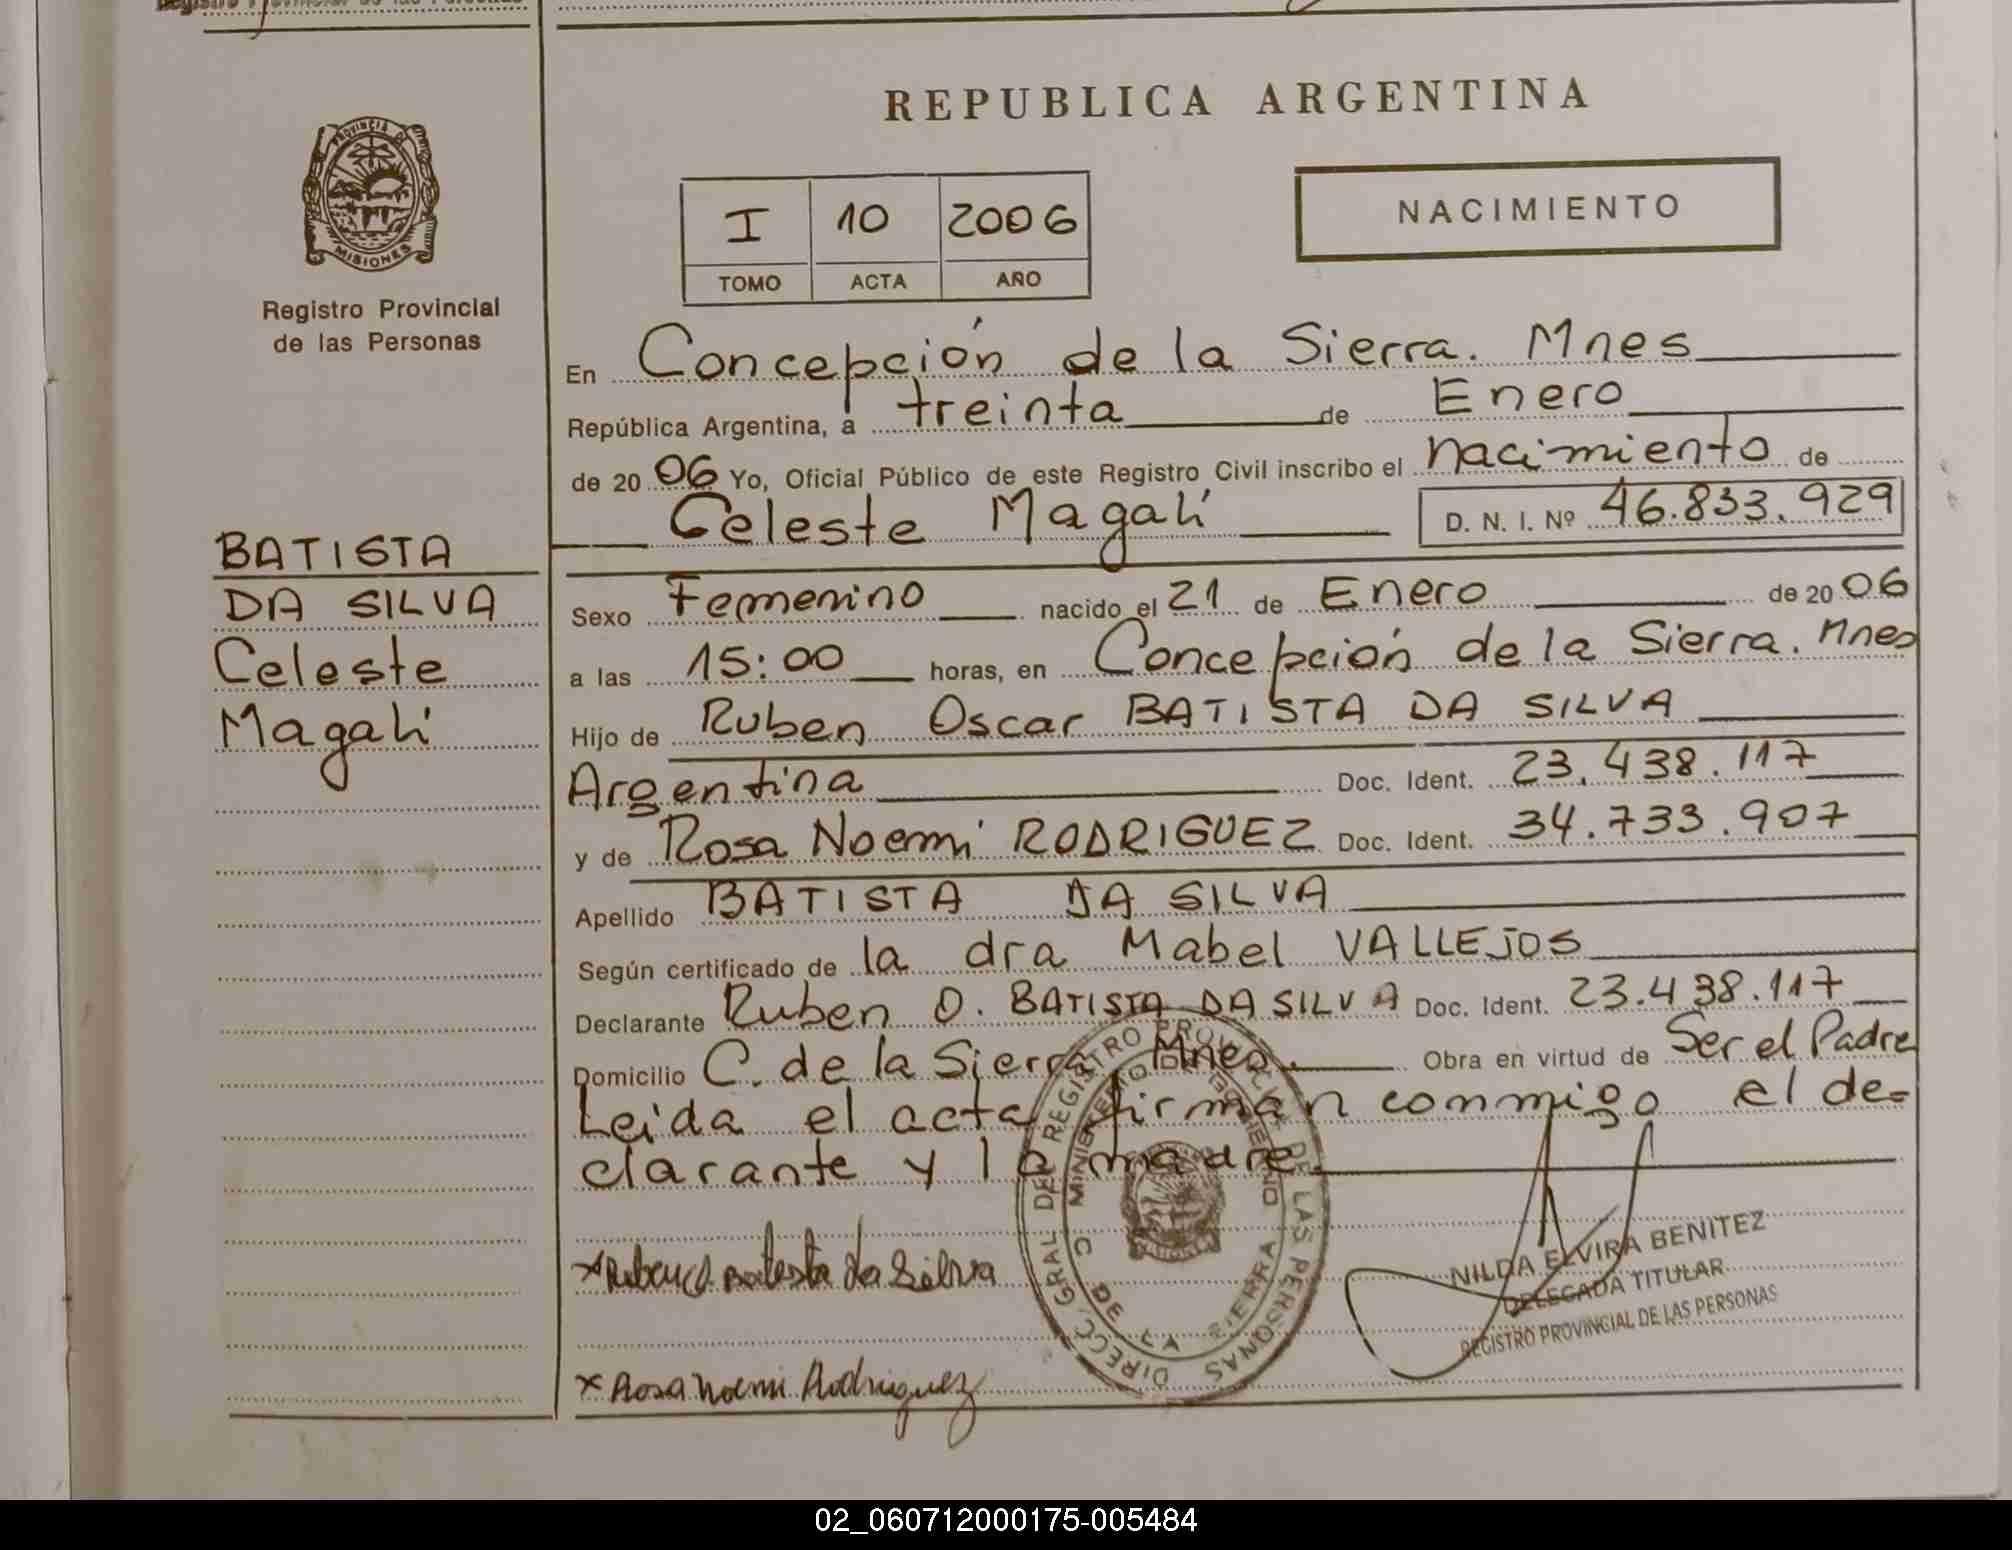 REPUBLICA ARGENTINA
PROVINCIA DE
MISIONES
Registro Provincial
de las Personas
I 10 2006
TOMO ACTA AÑO
NACIMIENTO
BATISTA
DA SILVA
Celeste
Magalí
En Concepción de la Sierra. Mnes
República Argentina, a treinta de Enero
de 2006 Yo, Oficial Público de este Registro Civil inscribo el nacimiento de
Celeste Magalí D. N. I. Nº 46.833.929
Sexo Femenino nacido el 21 de Enero de 2006
a las 15:00 horas, en Concepción de la Sierra. Mnes
Hijo de Ruben Oscar BATISTA DA SILVA
Argentina Doc. Ident. 23.438.117
y de Rosa Noemí RODRIGUEZ Doc. Ident. 34.733.907
Apellido BATISTA DA SILVA
Según certificado de la dra Mabel VALLEJOS
Declarante Ruben O. BATISTA DA SILVA Doc. Ident. 23.438.117
Domicilio C. de la Sierra Mnes. Obra en virtud de Ser el Padre
Leida el acta firman conmigo el de=
clarante y la madre.
DIRECC. GRAL DEL REGISTRO PROVINCIAL DE LAS PERSONAS
MINISTERIO DE GOBIERNO
C DE LA SIERRA
x Ruben O. Batista da Silva
NILDA ELVIRA BENITEZ
DELEGADA TITULAR
REGISTRO PROVINCIAL DE LAS PERSONAS
x Rosa Noemi Rodriguez
02_060712000175-005484